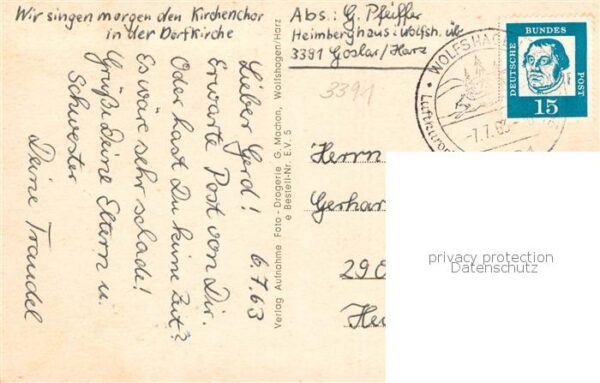 Wir singen morgen den Kirchenchor
in der Dorfkirche
Abs.: G. Pfeiffer
Heimberghaus i. Wolfsh. üb
3391 Goslar/Harz
3391
6.7.63
Lieber Gerd!
Erwarte Post von Dir.
Oder hast Du keine Zeit?
Es wär sehr schade!
Grüße Deine Eltern u.
Schwester
Deine Traudel
Verlag Aufnahme Foto - Drogerie G. Machon, Wolfshagen/Harz
e Bestell-Nr. E.V. 5
DEUTSCHE
BUNDES
POST
15
WOLFSHAG
Luftkuro
-7.7.63
Herrn
Gerhar
290
privacy protection
Datenschutz